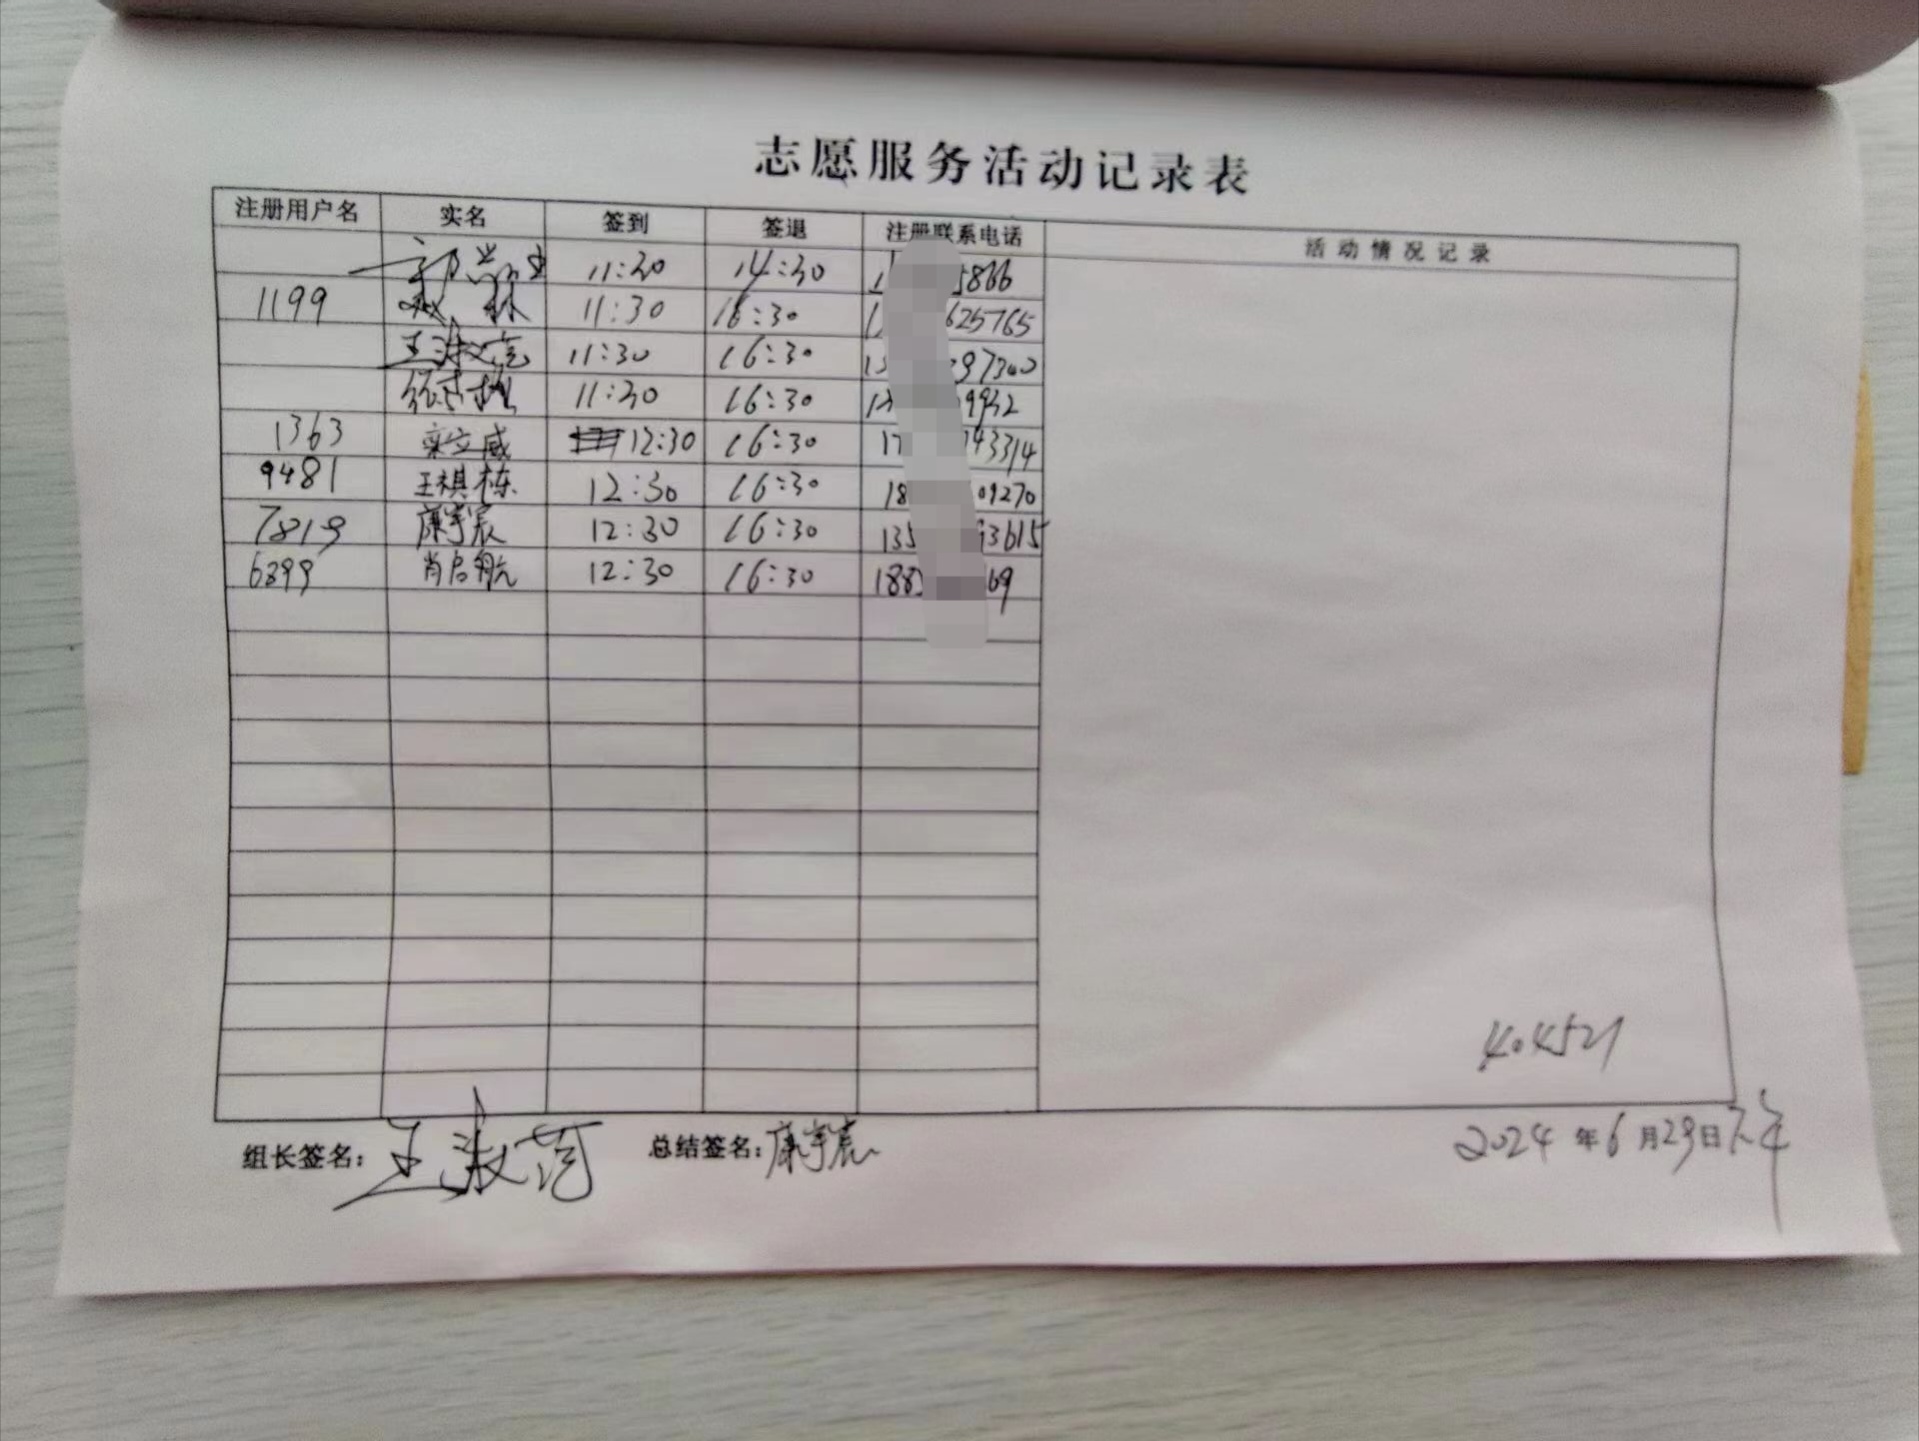 志愿服务活动记录表
注册用户名 实名 签到 签退 注册联系电话 活动情况记录
11:30 14:30 5866
1199 臧 11:30 16:30 625765
王淑苽 11:30 16:30 97340
11:30 16:30 9942
1363 栾立威 12:30 16:30 17 43314
9481 王祺栋 12:30 16:30 18 09270
7819 康宇宸 12:30 16:30 135 93615
6899 肖启航 12:30 16:30 188 69
404521
组长签名: 王淑 总结签名: 康宇宸 2024年6月29日下午